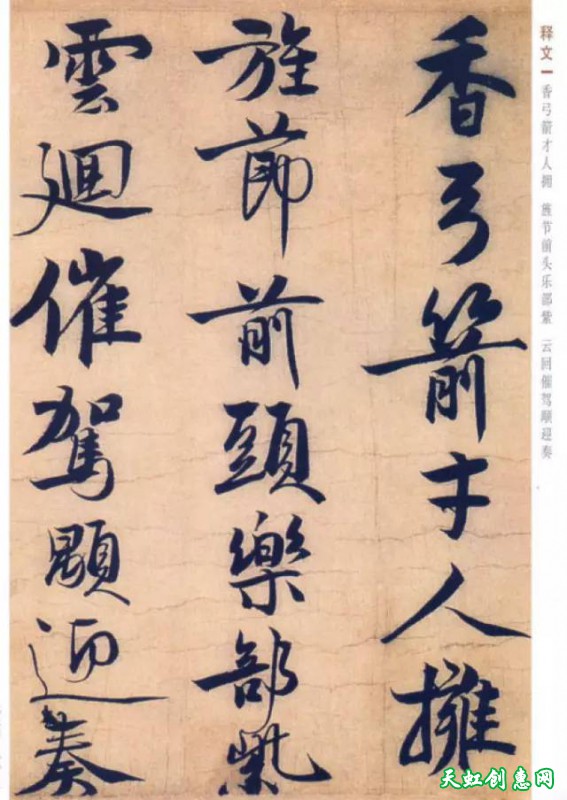 释文一 香弓箭才人拥 旌节前头乐部紫 云回催驾颙迎奏
香弓箭才人擁
旌節前頭樂部紫
雲廻催駕顒迎奏
天虹创惠网